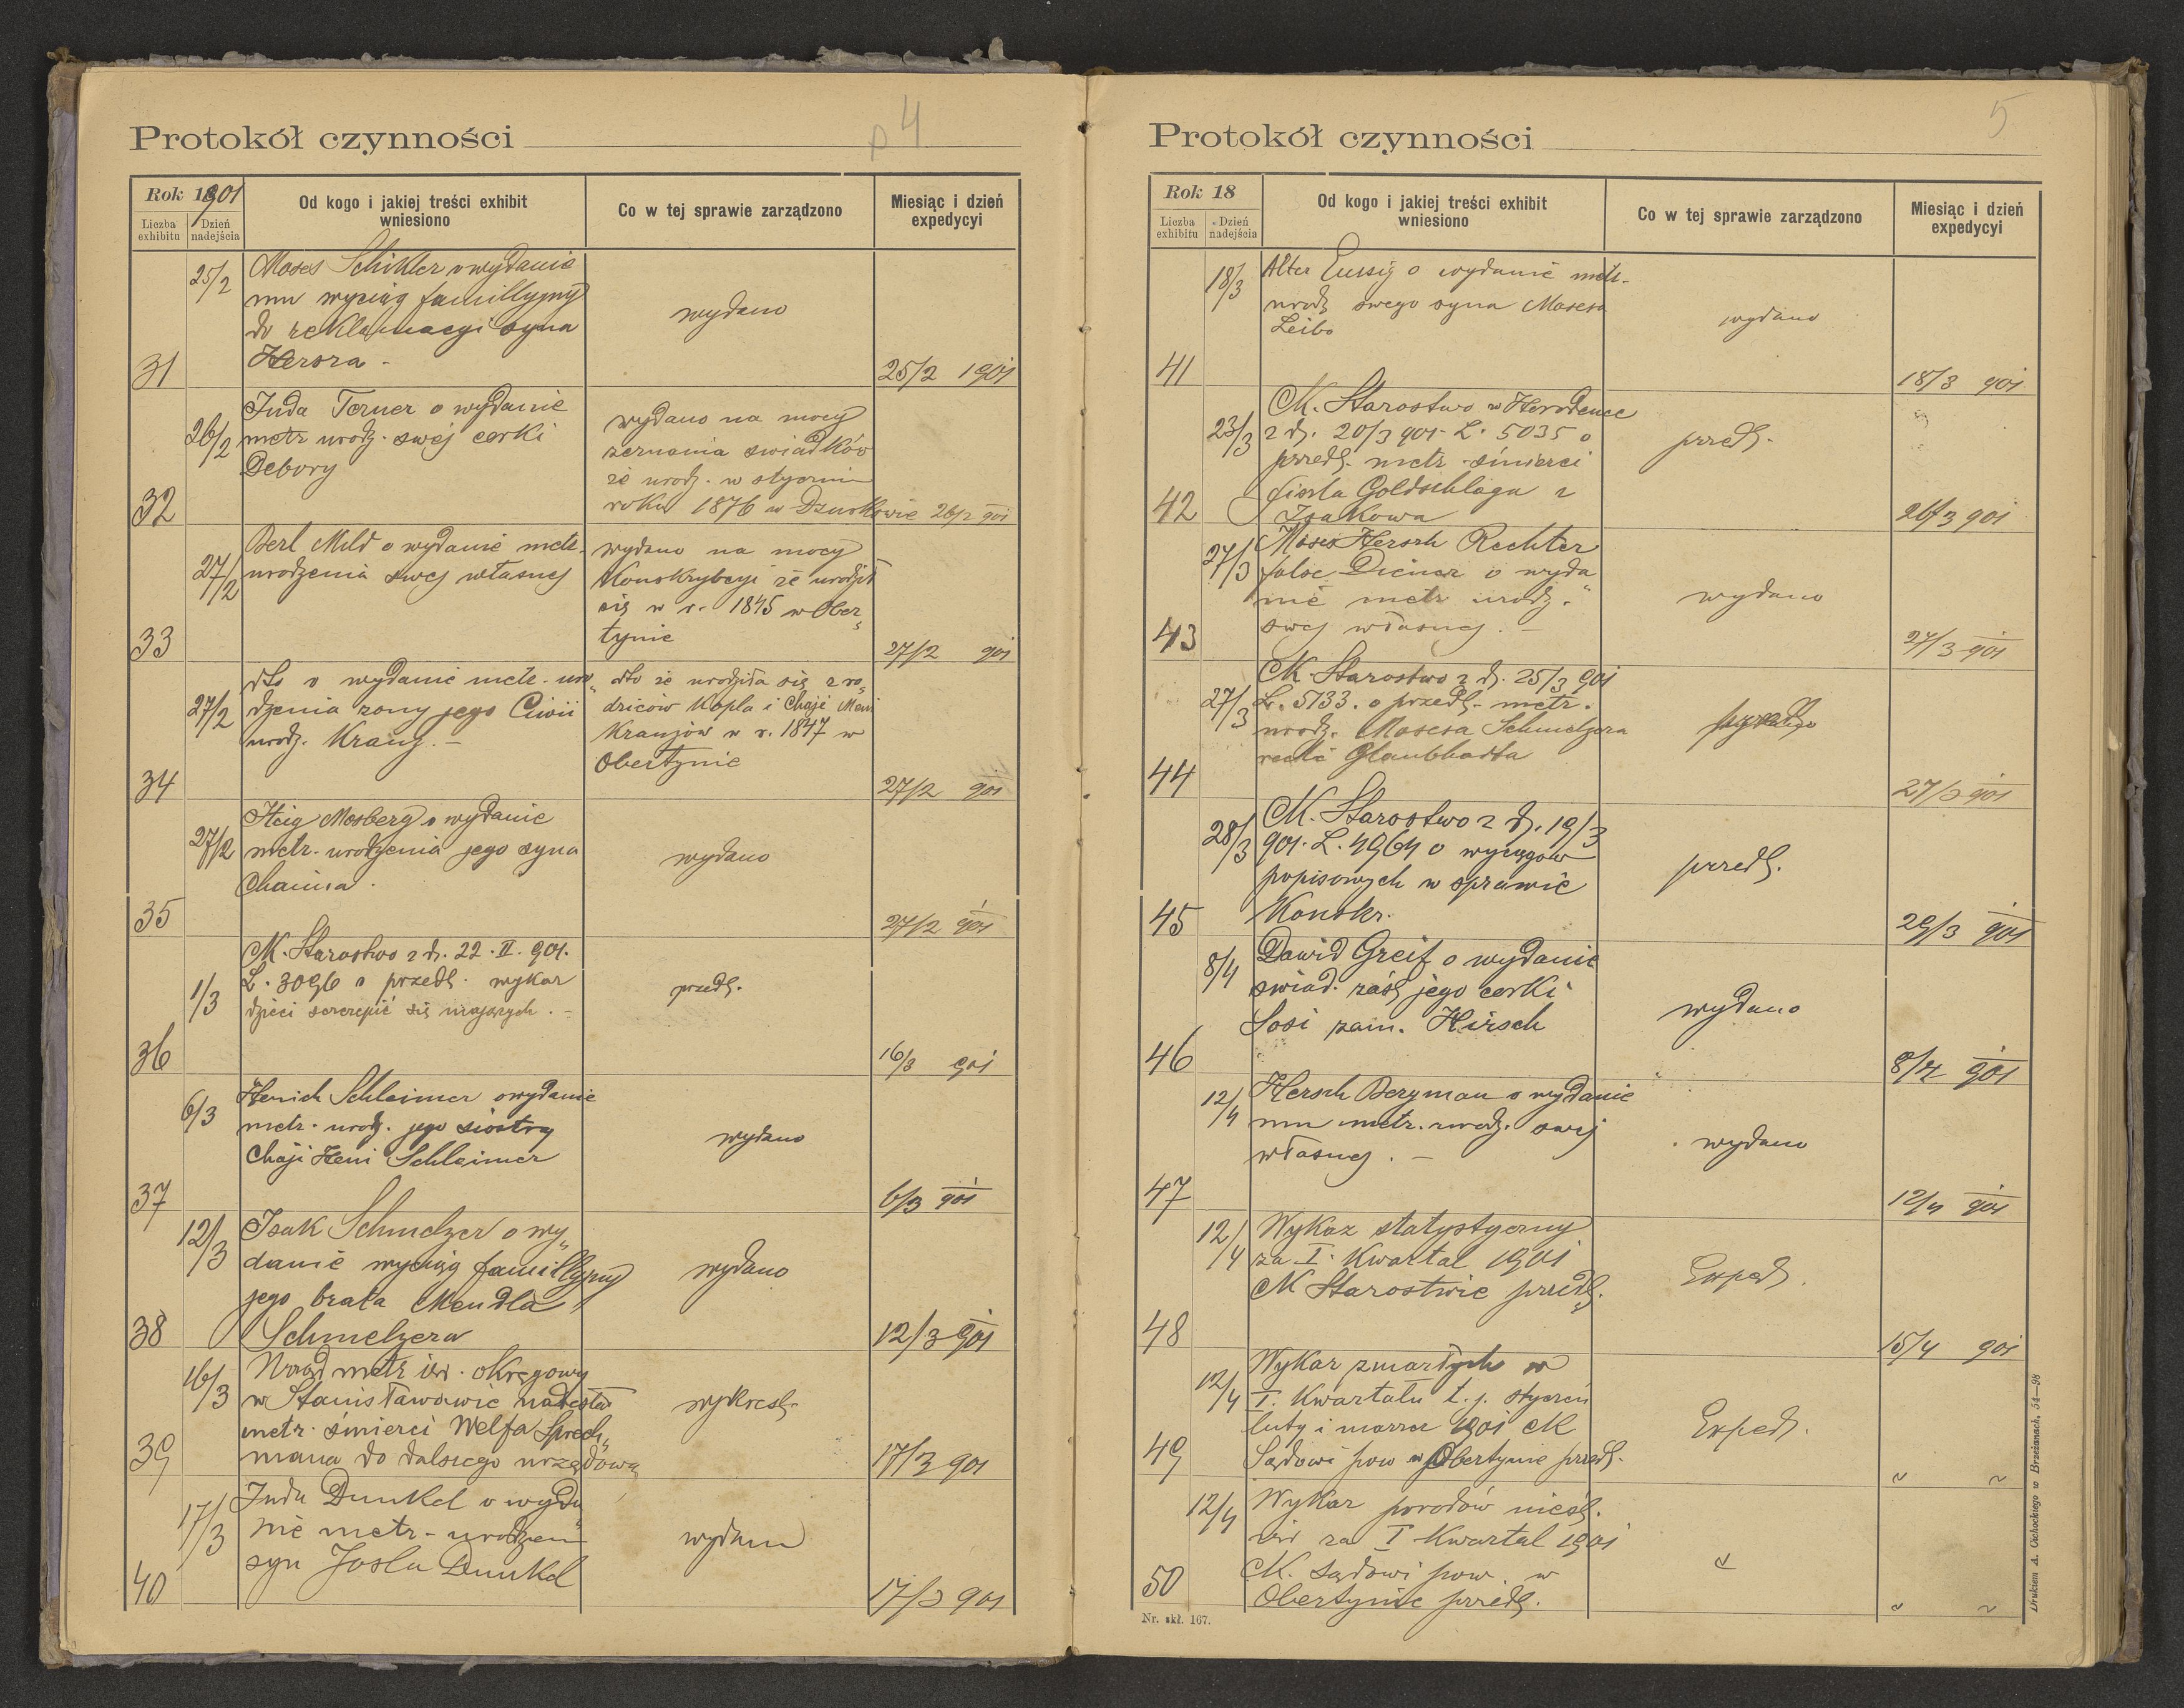 p 4
Protokół czynności
Rok 1901
Liczba exhibitu
Dzień nadejścia
Od kogo i jakiej treści exhibit wniesiono
Co w tej sprawie zarządzono
Miesiąc i dzień expedycyi
31
25/2
Moses Schikler o wydanie
mu wyciąg famillyjny
do reklamacyi syna
Hersza -
wydano
25/2 901
32
26/2
Juda Terner o wydanie
metr urodz. swej corki
Debory
wydano na mocy
zeznania swiadków
że urodz. w styczniu
roku 1876 w Dzurkowie
26/2 901
33
27/2
Berl Mild o wydanie metr.
urodzenia swej własnej
wydano na mocy
Konskrybcyi że urodził
się w r. 1845 w Ober„
tynie
27/2 901
34
27/2
dto o wydanie metr. uro„
dzenia żony jego Ciwii
urodz. Krauz. -
dto że urodziła się z ro„
dziców Kopla i Chaje
Krauzów w r. 1847 w
Obertynie
27/2 901
35
27/2
Itzig Mosberg o wydanie
metr. urodzenia jego syna
Chaima.
wydano
27/2 901
36
1/3
CK. Starostwo z d. 22. II. 901.
L. 3096 o przedł. wykaz
dzieci szczepić się mających. -
przedł.
16/3 901
37
6/3
Henich Schleimer o wydanie
metr. urodz. jego siostry
Chaji Heni Schleimer
wydano
6/3 901
38
12/3
Isak Schmelzer o wy„
danie wyciąg famillyjny
jego brata Mendla
Schmelzera
wydano
12/3 901
39
16/3
Urząd metr izr. okręgowy
w Stanisławowie nadesłał
metr. śmierci Welfa Sprech„
mana do dalszego urzędowa
wykreśl.
17/3 901
40
17/3
Juda Dunkel o wyda„
nie metr - urodzen
syn Josla Dunkel
wydano
17/3 901
5
Protokół czynności
Rok 18
Liczba exhibitu
Dzień nadejścia
Od kogo i jakiej treści exhibit wniesiono
Co w tej sprawie zarządzono
Miesiąc i dzień expedycyi
41
18/3
Alter Eussig o wydanie metr.
urodz swego syna Mosesa
Leiba
wydano
18/3 901
42
23/3
CK. Starostwo w Horodence
z d. 20/3 901 L. 5035 o
przedł. metr. śmierci
Fiszla Goldschlaga z
Isakowa
przedł.
26/3 901
43
27/3
Moses Hersch Rechter
false Diener o wyda
nie metr urodz.
swej własnej. -
wydano
27/3 901
44
27/3
CK Starostwo z d. 25/3 901
L. 5133. o przedł. metr.
urodz. Mosesa Schmelzera
recte
27/3 901
45
28/3
CK. Starostwo z d. 19/3
901. L. 4964 o wyciągów
popisowych w sprawie
Konskr.
przedł.
29/3 901
46
8/4
Dawid Greif o wydanie
swiad. zaśl jego corki
Sosi zam. Hirsch
wydano
8/4 901
47
12/4
Hersch Bergman o wydanie
mu metr. urodz. swej
własnej. -
wydano
12/4 901
48
12/4
Wykaz statystyczny
za I. Kwartal 1901
CK Starostwie przedł.
Exped.
15/4 901
49
12/4
Wykaz zmarłych w
I. Kwartału t. j. styczeń
luty i marzec 1901 CK
Sądowi pow w Obertynie przedł.
Exped.
" "
50
12/4
Wykaz porodów nieśl.
izr za I Kwartal 1901
CK. Sądowi pow. w
Obertynie przedł.
"
" "
Nr. skł. 167.
Drukiem A. Cichockiego w Brzeżanach. 54—98